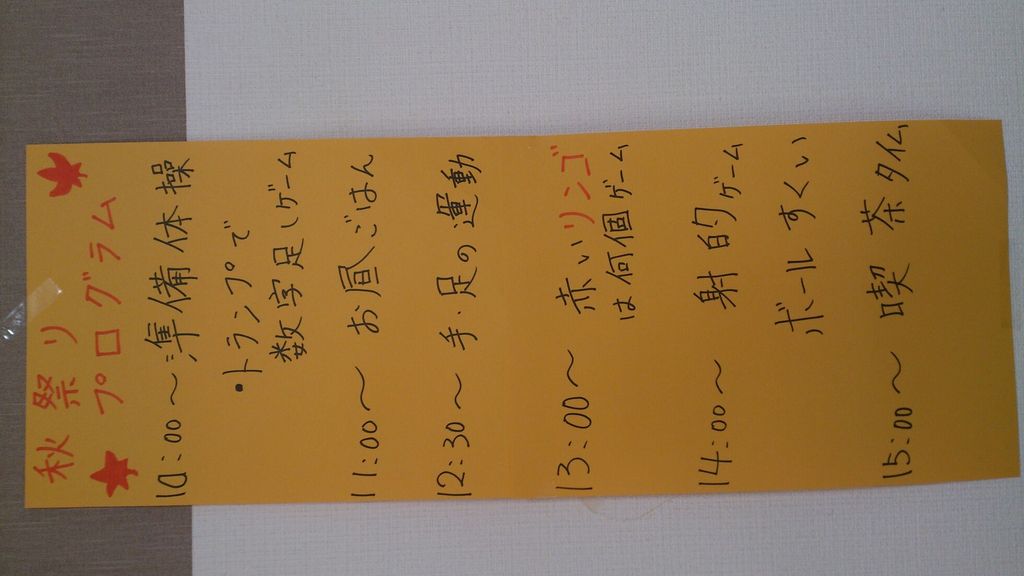 秋祭り
プログラム
10:00～準備体操
・トランプで
数字足しゲーム
11:00～お昼ごはん
12:30～手・足の運動
13:00～赤いリンゴ
は何個ゲーム
14:00～射的ゲーム
ボールすくい
15:00～喫茶タイム